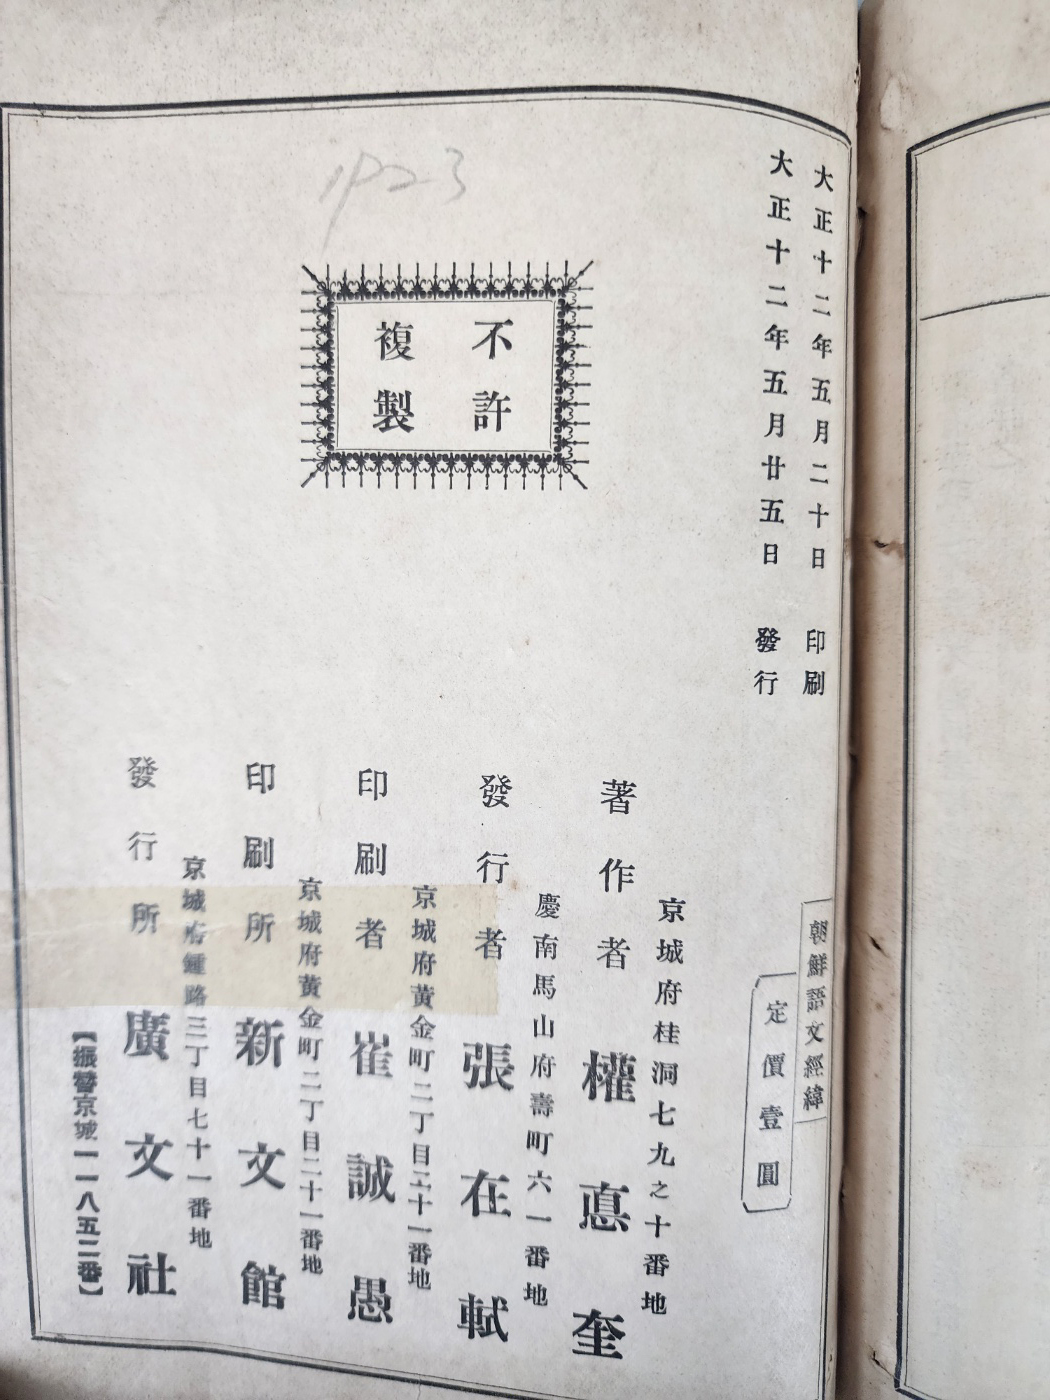 大正十二年五月二十日 印刷
大正十二年五月廿五日 發行
朝鮮語文經緯
定價壹圓
1923
不許
複製
京城府桂洞七九之十番地
著作者 權悳奎
慶南馬山府壽町六一番地
發行者 張在軾
京城府黃金町二丁目二十一番地
印刷者 崔誠愚
京城府黃金町二丁目二十一番地
印刷所 新文館
京城府鍾路三丁目七十一番地
發行所 廣文社
【振替京城一一八五二番】